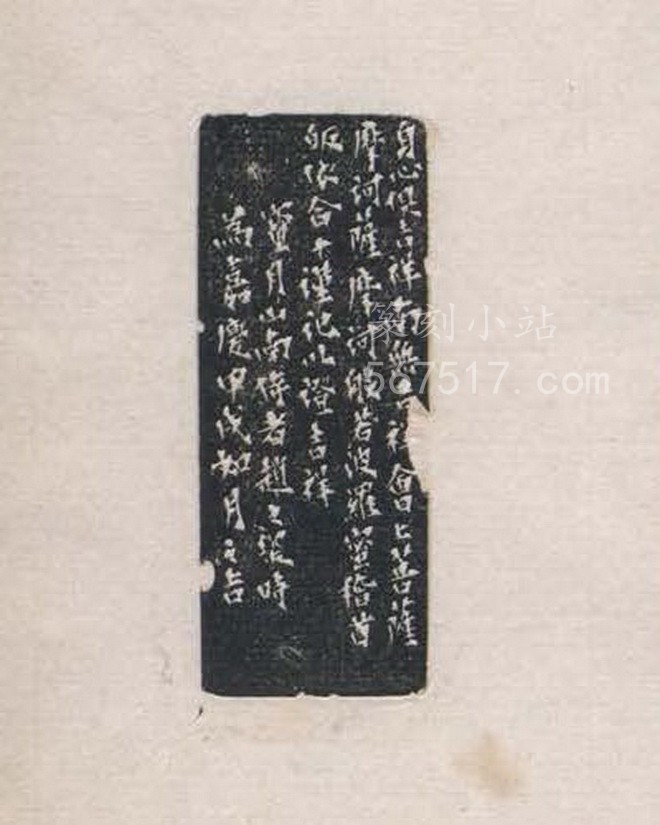 身心俱吉祥南無吉祥會上菩薩
摩訶薩摩訶般若波羅蜜稽首
皈依合十謹記以證吉祥
寶月山南侍者趙之琛時
為嘉慶甲戌如月之吉
篆刻小站
567517.com